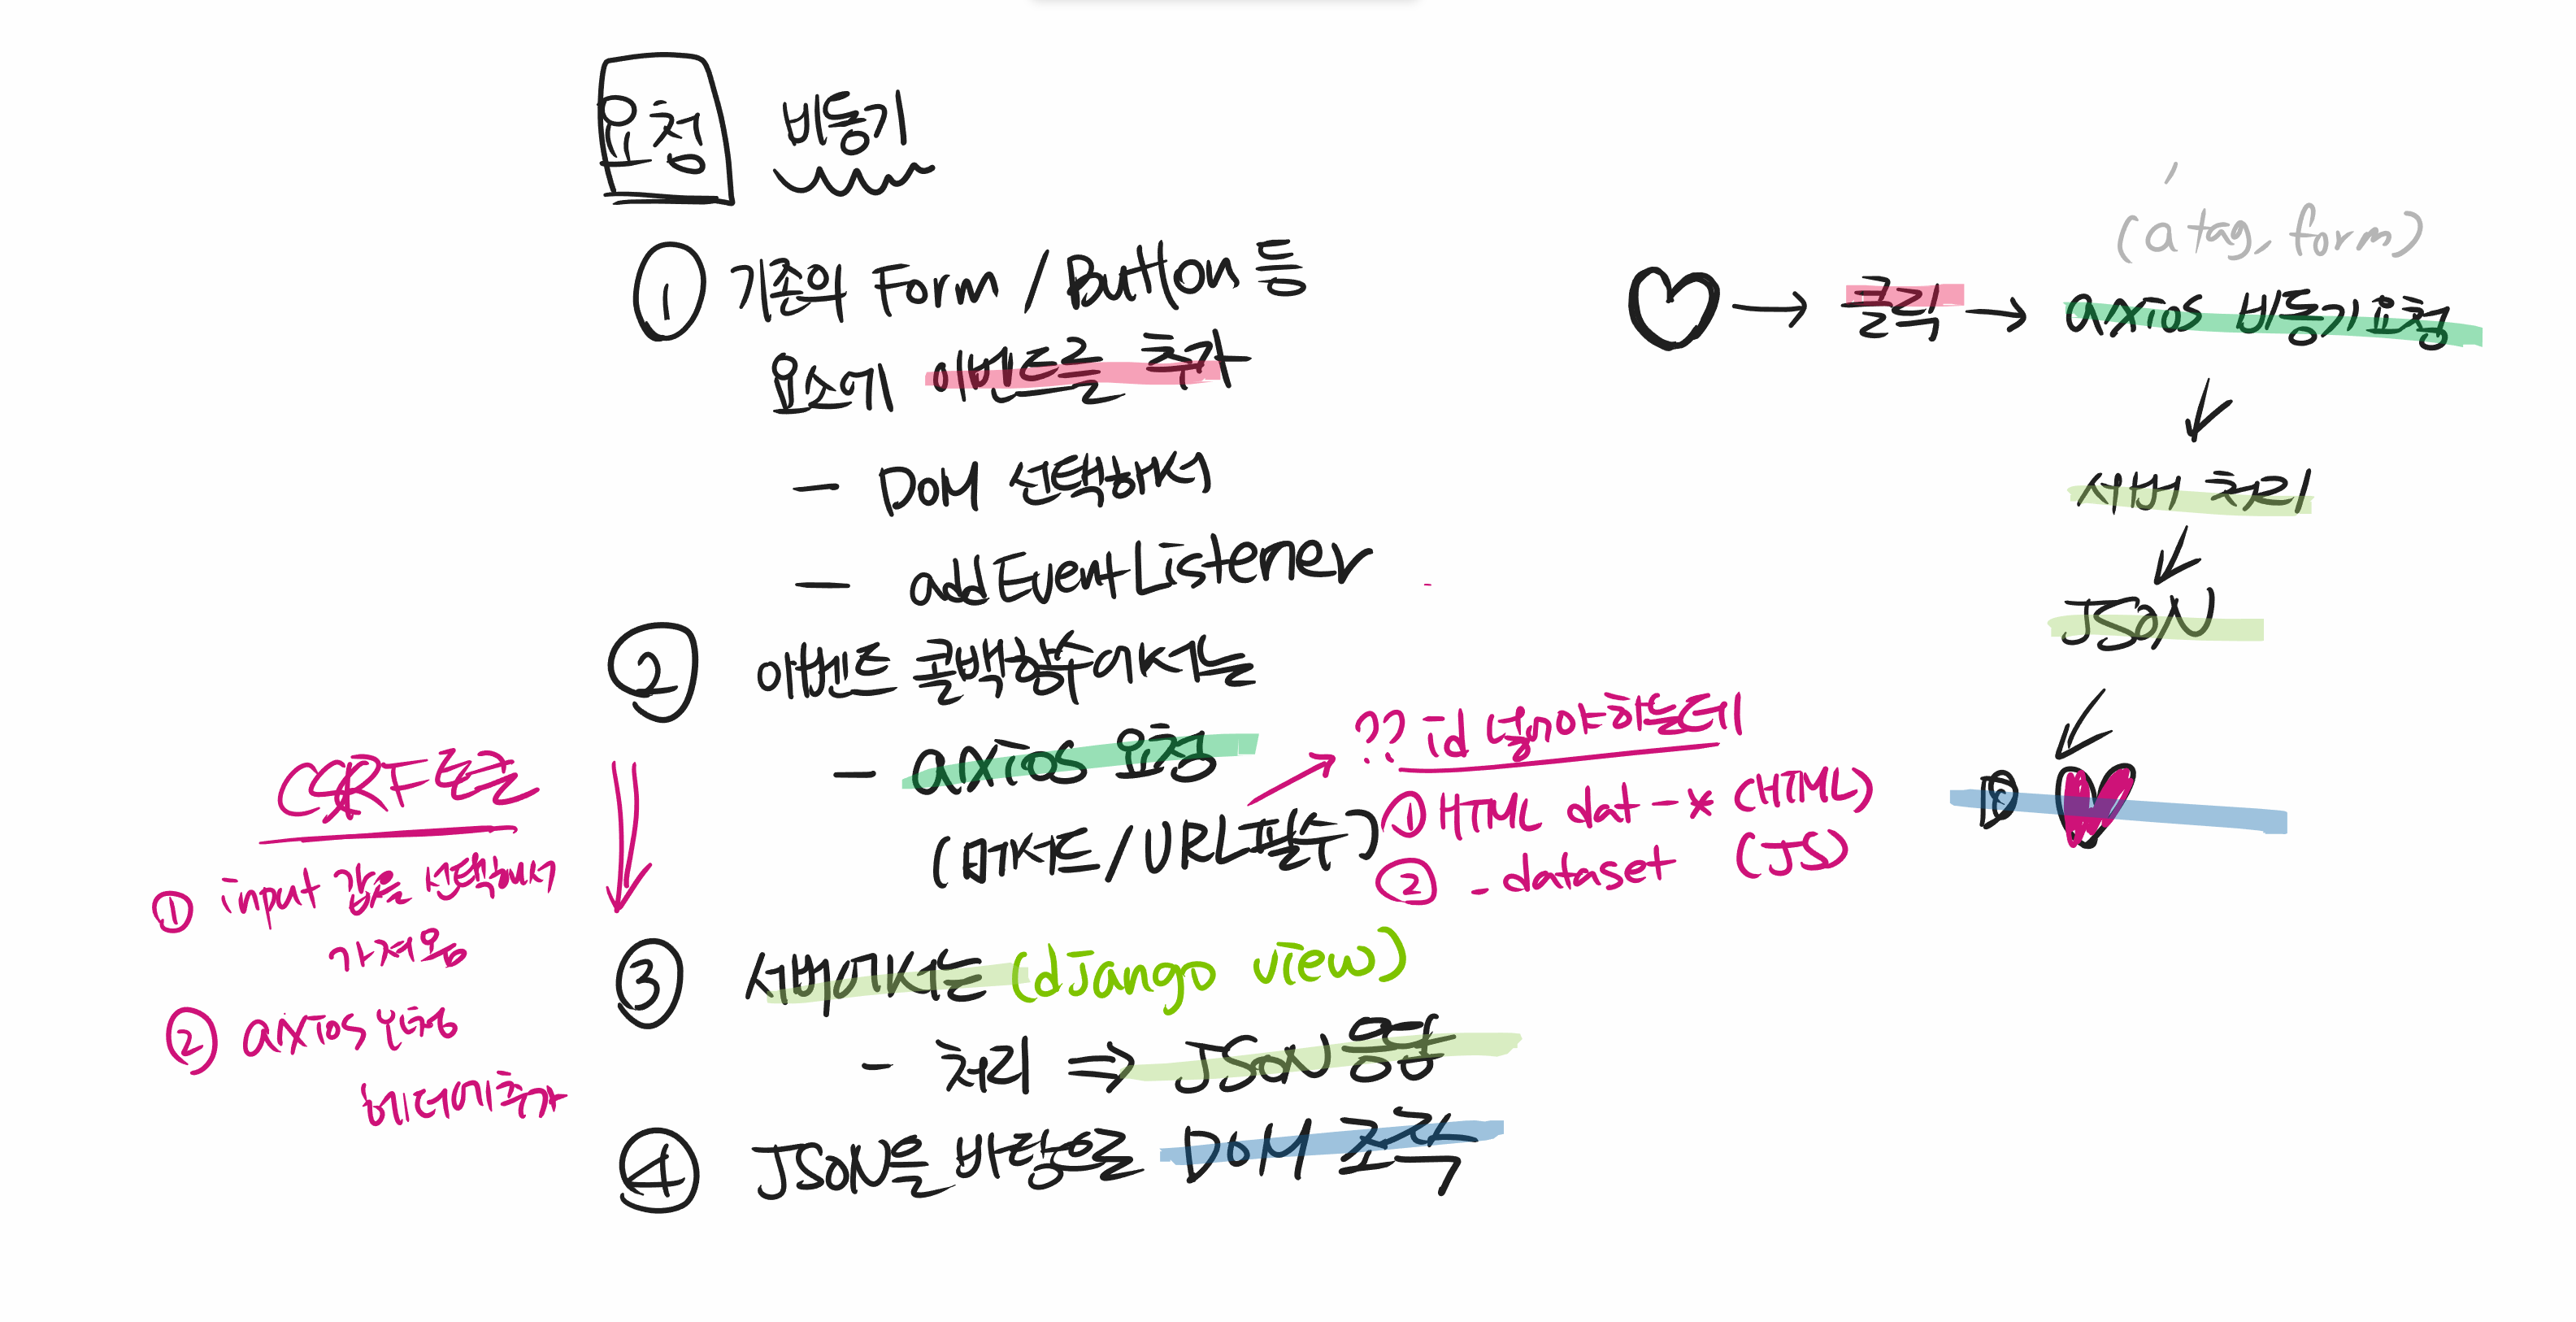 요청 비동기
① 기존의 Form / Button 등
요소에 이벤트를 추가
- DOM 선택해서
- addEventListener
② 이벤트 콜백함수에서는
- axios 요청
(메서드/URL필수)
?? id 넣어야하는데
① HTML dat-* (HTML)
② - dataset (JS)
CSRF토큰
① input 값을 선택해서
가져옴
② axios 요청
헤더에추가
③ 서버에서는 (django view)
- 처리 ⇒ JSON 응답
④ JSON을 바탕으로 DOM 조작
(a tag, form)
♡ → 클릭 → axios 비동기요청
서버 처리
JSON